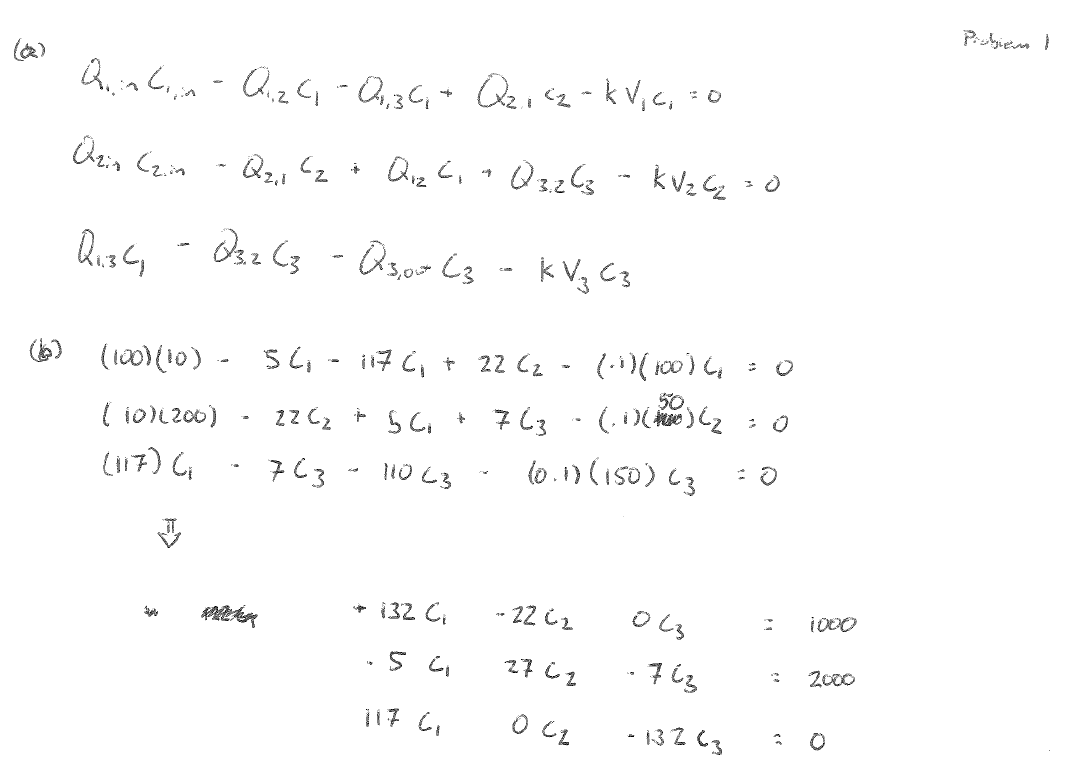 Problem 1
(a)
Q₁,in C₁,in - Q₁,₂ C₁ - Q₁,₃ C₁ + Q₂,₁ C₂ - k V₁ C₁ = 0
Q₂in C₂,in - Q₂,₁ C₂ + Q₁₂ C₁ + Q₃,₂ C₃ - k V₂ C₂ = 0
Q₁,₃ C₁ - Q₃,₂ C₃ - Q₃,out C₃ - k V₃ C₃
(b) (100)(10) - 5 C₁ - 117 C₁ + 22 C₂ - (.1)(100) C₁ = 0
(10)(200) - 22 C₂ + 5 C₁ + 7 C₃ - (.1)(50) C₂ = 0
(117) C₁ - 7 C₃ - 110 C₃ - (0.1)(150) C₃ = 0
⇓
+ 132 C₁ - 22 C₂ 0 C₃ = 1000
- 5 C₁ 27 C₂ - 7 C₃ = 2000
117 C₁ 0 C₂ - 132 C₃ = 0